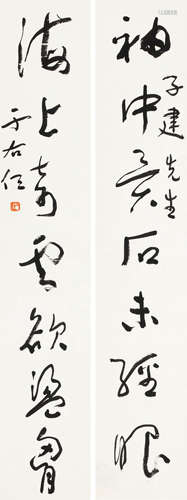 袖中異石未經眼
子建先生
海上奇雲欲盪胷
于右任